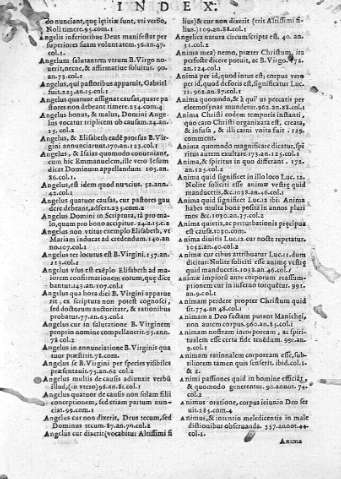 INDEX.
do nunciant, quę legitim sunt, vti verbo,
Noli timere. 95.com.1
Angelis inferioribus Deus manifestat per
superiores suam voluntatem. 59.an.47.
col.1
Angelum salutantem vtrum B. Virgo no-
uerit, necne, & affirmatiue soluitur. 90.
an.73.col.1
Angelus, qui pastoribus apparuit, Gabriel
fuit. 223.an.15.col.1
Angelus quatuor assignat causas, quare pa
stores non debeant timere. 224.com.4
Angelus bonus, & malus, Domini Ange-
lus vocatur triplicem ob causam. 24.an.
25.col.2
Angelus, & Elisabeth eadē prorsus B. Vir-
gini annunciarunt. 170.an.123.col.1
Angelus, & Isaias quomodo conueniant,
cum hic Emmanuelem, ille vero Iesum
dicat Dominum appellandum. 105.an.
86.col.1
Angelus, est idem quod nuncius. 52.ann.
42.col.1
Angelus quatuor causas, cur pastores gau
dere debeant, adfert. 223.com.2
Angelus Domini in Scriptura, si pro ma-
lo, quam pro bono accipitur. 24.a.25.c.2
Angelus non vtitur exemplo Elisabeth, vt
Mariam inducat ad credendum. 140.an.
107.col.1
Angelus vt loquitur de B. Virgine. 137.an.
col.1
Angelus vsus est exēplo Elisabeth ad ma-
iorem confirmationem eorum, quę dice
bantur. 143.an.107.col.1
Angelus qua hora diei B. Virgini apparue
rit, ex scriptura non potest cognosci,
sed doctorum auctoritate, & rationibus
probatur. 75.an.63.col.1
Angelus cur in salutatione B. Virginem
proprio nomine compellauerit. 95.ann.
78.col.2
Angelus in annunciatione B. Virginis qua
tuor præstitit. 78.com.
Angelus se B. Virgini per species visibiles
præsentauit. 75.an.62.col.2
Angelus multis de causis adiunxit verba
illud, (in vtero) 98.an.81.col.1
Angelus quatuor de causis non solum filii
conceptionem, sed etiam partum nun-
ciat. 99.com.1
Angelus cur non dixerit, Deus tecum, sed
Dominus tecum. 87.an.70.col.2
Angelus cur dixerit (vocabitur Altissimi fi
lius) & cur non dixerit (erit Altissimi fi-
lius.) 109.an.88.col.1
Angelica natura circumscripta est. 40.an.
31.col.2
Anima mea) nemo, præter Christum, ita
perfecte dicere potuit, ac B. Virgo. 172.
an.124.col.1
Anima per id, quod intus est, corpus vero
per id, quod deforis est, significatur Luc.
11. 962.an.87.col.1
Anima quomodo, & à qui° vt peccatis per
eleemosynas mundetur. 962.an.88.col.1
Anima Christi eodem temporis instanti,
quo caro Christi organizata est, creata,
& infusa, & illi carni vnita fuit. 129.
comment.
Anima quomodo magnificare dicatur, spi
ritus autem exultare. 173.an.125.col.1
Anima, & spiritus in quo differant. 172.an.
125.col.2
Anima quid significet in illo loco Luc. 12.
Nolite soliciti esse animæ vestrę quid
manducetis, &c. 1038.an.46.col.1
Anima quid significet Luc. 12 ibi: Anima
habes multa bona posita in annos pluri
mos &c. 1030.an.37.col.1
Anima quietis, ac perturbationis pręcipua
est causa. 1230.com.
Anima diuitis Luc. 12. cur nocte repetatur.
1032.an.40.col.2
Animæ cur cibus attribuatur Luc. 12. dum
dicitur: Nolite soliciti esse animę vestrę
quid manducetis. 1038.an.46.col.1
Animæ impiorū ante corporum reassum-
ptionem cur in inferno torqueātur. 991.
an.9.col.1
Animam perdere propter Christum quid
sit. 774.an.48.col.1
Animam à Deo factam putant Manichęi,
non autem corpus. 962.an.85.col.1
Animam nostram immortalem, ac spiri-
tualem esse certa fide tenendū. 991.an.
9.col.1
Animam rationalem corpoream esse, sub-
tiliorem tamen quis senserit. ibid. col.1.
& 2.
Animi passiones quid in homine efficiāt,
& quomodo generentur. 90.annot. 74.
col.2
Animus oratione, corpus ieiunio Deo ser
uit. 285.com.4
Animus, & intentio meledicentis in male
dictionibus obseruanda. 357.annot.44.
col.1
Anima